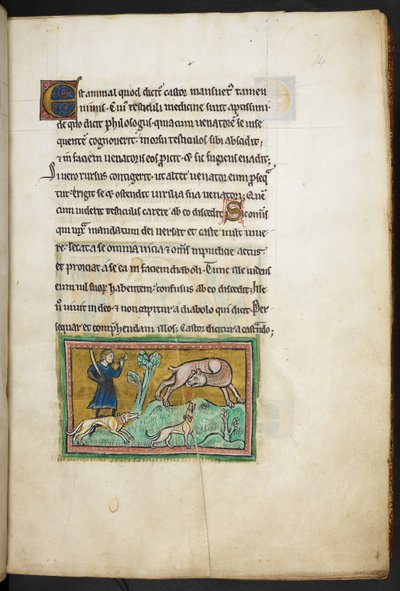 14
Est animal quod dicit᷑ castor mansuet᷒ tam̄ en
nimis. Eiꝰ testiculi medicine sunt aptissimi
de quo dicit phisologus. quia cum uenatorē se inse
quentē cognouerit. morsu testiculos sibi abscidit;
⁊ in faciem uenatoris eos ꝓicit. ⁊ sic fugiens euadit;
Si uero rursus contigerit. ut alter uenator eum ꝑseq̄
tur. erigit se ⁊ ostendit uirilia sua uenatori. Quē
cum uiderit testiculis carere ab eo discedit. Sic om̄is
qui iuxͣ mandatum dei uersat᷑ ⁊ caste uult uiue
re. secat a se omnia uicia ⁊ om̄s impudicicie actus.
et proiciat a se ea in faciem diaboli. Tunc ille uidens
eum nil suoꝝ habentem. confusus ab eo discedit. Ille
u᷎o uiuit in deo ⁊ non capitur a diabolo qui dicit. Per
sequar et comprehendam illos; Castor dicitur a castrando;